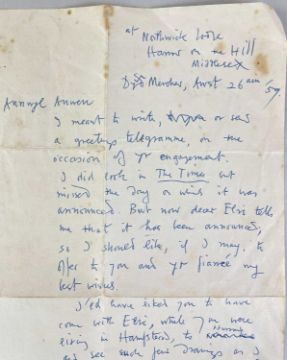 at Northwick Lodge
Harrow on the Hill
Middlesex
Dydd Mercher, Awst 26 ain /59
Annwyl Anwen
I meant to write, or send
a greetings telegramme, on the
occasion of yr engagement.
I did look in The Times but
missed the day on which it was
announced. But now dear Elsi tells
me that it has been announced,
so I should like, if I may, to
offer to you and yr fiancé my
best wishes.
I'd have liked you to have
come with Elsi, while you were
living in Hampstead, to Harrow
and see such few drawings as I